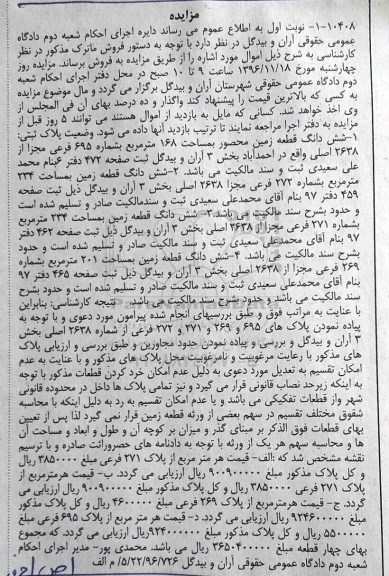 مزایده
۱-۱۰۴۰۸- نوبت اول به اطلاع عموم می رساند دایره اجرای احکام شعبه دوم دادگاه
عمومی حقوقی آران و بیدگل در نظر دارد با توجه به دستور فروش ماترک مذکور در نظر
کارشناسی به شرح ذیل اموال مورد اشاره را از طریق مزایده به فروش برساند. مزایده روز
چهارشنبه مورخ ۱۳۹۶/۱۱/۱۸ ساعت ۹ تا ۱۰ صبح در محل دفتر اجرای احکام شعبه
دوم دادگاه عمومی حقوقی شهرستان آران و بیدگل برگزار می گردد و مال موضوع مزایده
به کسی که بالاترین قیمت را پیشنهاد کند واگذار و ده درصد بهای آن فی المجلس از
وی اخذ خواهد شد. کسانی که مایل به بازدید از اموال هستند می توانند ۵ روز قبل از
مزایده به دفتر اجرا مراجعه نمایند تا ترتیب بازدید آنها داده می شود. وضعیت پلاک ثبتی:
۱-شش دانگ قطعه زمین محصور بمساحت ۱۶۸ مترمربع بشماره ۶۹۵ فرعی مجزا از
۲۶۳۸ اصلی واقع در احمدآباد بخش ۳ آران و بیدگل ثبت صفحه ۴۷۲ دفتر ۶بنام محمد
علی سعیدی ثبت و سند مالکیت می باشد. ۲-شش دانگ قطعه زمین بمساحت ۲۳۴
مترمربع بشماره ۲۷۲ فرعی مجزا ۲۶۳۸ اصلی بخش ۳ آران و بیدگل ذیل ثبت صفحه
۴۵۹ دفتر ۹۷ بنام آقای محمدعلی سعیدی ثبت و سندمالکیت صادر و تسلیم شده است
و حدود بشرح سند مالکیت می باشد.۳- شش دانگ قطعه زمین بمساحت ۲۳۴ مترمربع
بشماره ۲۷۱ فرعی مجزا از ۲۶۳۸ اصلی بخش ۳ آران و بیدگل ذیل ثبت صفحه ۴۶۲ دفتر
۹۷ بنام آقای محمدعلی سعیدی ثبت و سند مالکیت صادر و تسلیم شده است و حدود
بشرح سند مالکیت می باشد. ۴-شش دانگ قطعه زمین بمساحت ۲۰۱ مترمربع بشماره
۲۶۹ فرعی مجزا از ۲۶۳۸ اصلی بخش ۳ آران و بیدگل ذیل ثبت صفحه ۴۶۵ دفتر ۹۷
بنام آقای محمدعلی سعیدی ثبت و سند مالکیت صادر و تسلیم شده است و حدود بشرح
سند مالکیت می باشد و حدود بشرح سند مالکیت می باشد. نتیجه کارشناسی: بنابراین
با عنایت به مراتب فوق و طبق بررسیهای انجام شده پیرامون مورد دعوی و با توجه به
پیاده نمودن پلاک های ۶۹۵ و ۲۶۹ و ۲۷۱ و ۲۷۲ فرعی از شماره ۲۶۳۸ اصلی بخش
۳ آران و بیدگل و بررسی و پیاده نمودن حدود مجاورین و طبق بررسی و ارزیابی پلاک
های مذکور با رعایت مرغوبیت و نامرغوبیت محل پلاک های مذکور و با عنایه به عدم
امکان تقسیم به تعدیل مورد دعوی به دلیل عدم امکان خرد کردن قطعات مذکور با توجه
به اینکه زیرحد نصاب قانونی قرار می گیرد و نیز تمامی پلاک ها داخل در محدوده قانونی
شهر واز قطعات تفکیکی می باشد و یا عدم امکان تقسیم به رد به دلیل اینکه با محاسبه
شقوق مختلف تقسیم در سهم بعضی از ورثه قطعه زمین قرار نمی گیرد لذا پس از تعیین
بهای قطعات فوق الذکر بر مبنای گذر و میزان بر کوچه آن و طول و ابعاد و مساحت آن
ها و محاسبه سهم هر یک از ورثه با توجه به دادنامه های حصروراثت صادره و با ترسیم
نقشه مشخص شد که :الف- قیمت هر متر مربع از پلاک ۲۷۱ فرعی مبلغ ۳۸۵۰۰۰۰ ریال
و کل پلاک مذکور مبلغ ۹۰۰۹۰۰۰۰۰ ریال ارزیابی می گردد. ب- قیمت هرمترمربع از
پلاک ۲۷۱ فرعی ۳۸۵۰۰۰۰ ریال و کل پلاک مذکور مبلغ ۹۰۰۹۰۰۰۰۰ ریال ارزیابی می
گردد. ج- قیمت هرمترمربع از پلاک ۲۶۹ فرعی مبلغ ۴۶۰۰۰۰۰ ریال و کل پلاک مذکور
مبلغ ۹۲۴۶۰۰۰۰۰ ریال ارزیابی می گردد. د- قیمت هر متر مربع از پلاک ۶۹۵ فرعی مبلغ
۵۵۰۰۰۰۰ ریال و کل پلاک مذکور مبلغ ۹۲۴۰۰۰۰۰۰ ریال ارزیابی می گردد. که مجموع
بهای چهار قطعه مبلغ ۳۶۵۰۴۰۰۰۰۰ ریال می باشد. محمدی پور- مدیر اجرای احکام
شعبه دوم دادگاه عمومی حقوقی آران و بیدگل ۵/۲۲/۹۶/۷۲۶/ م الف